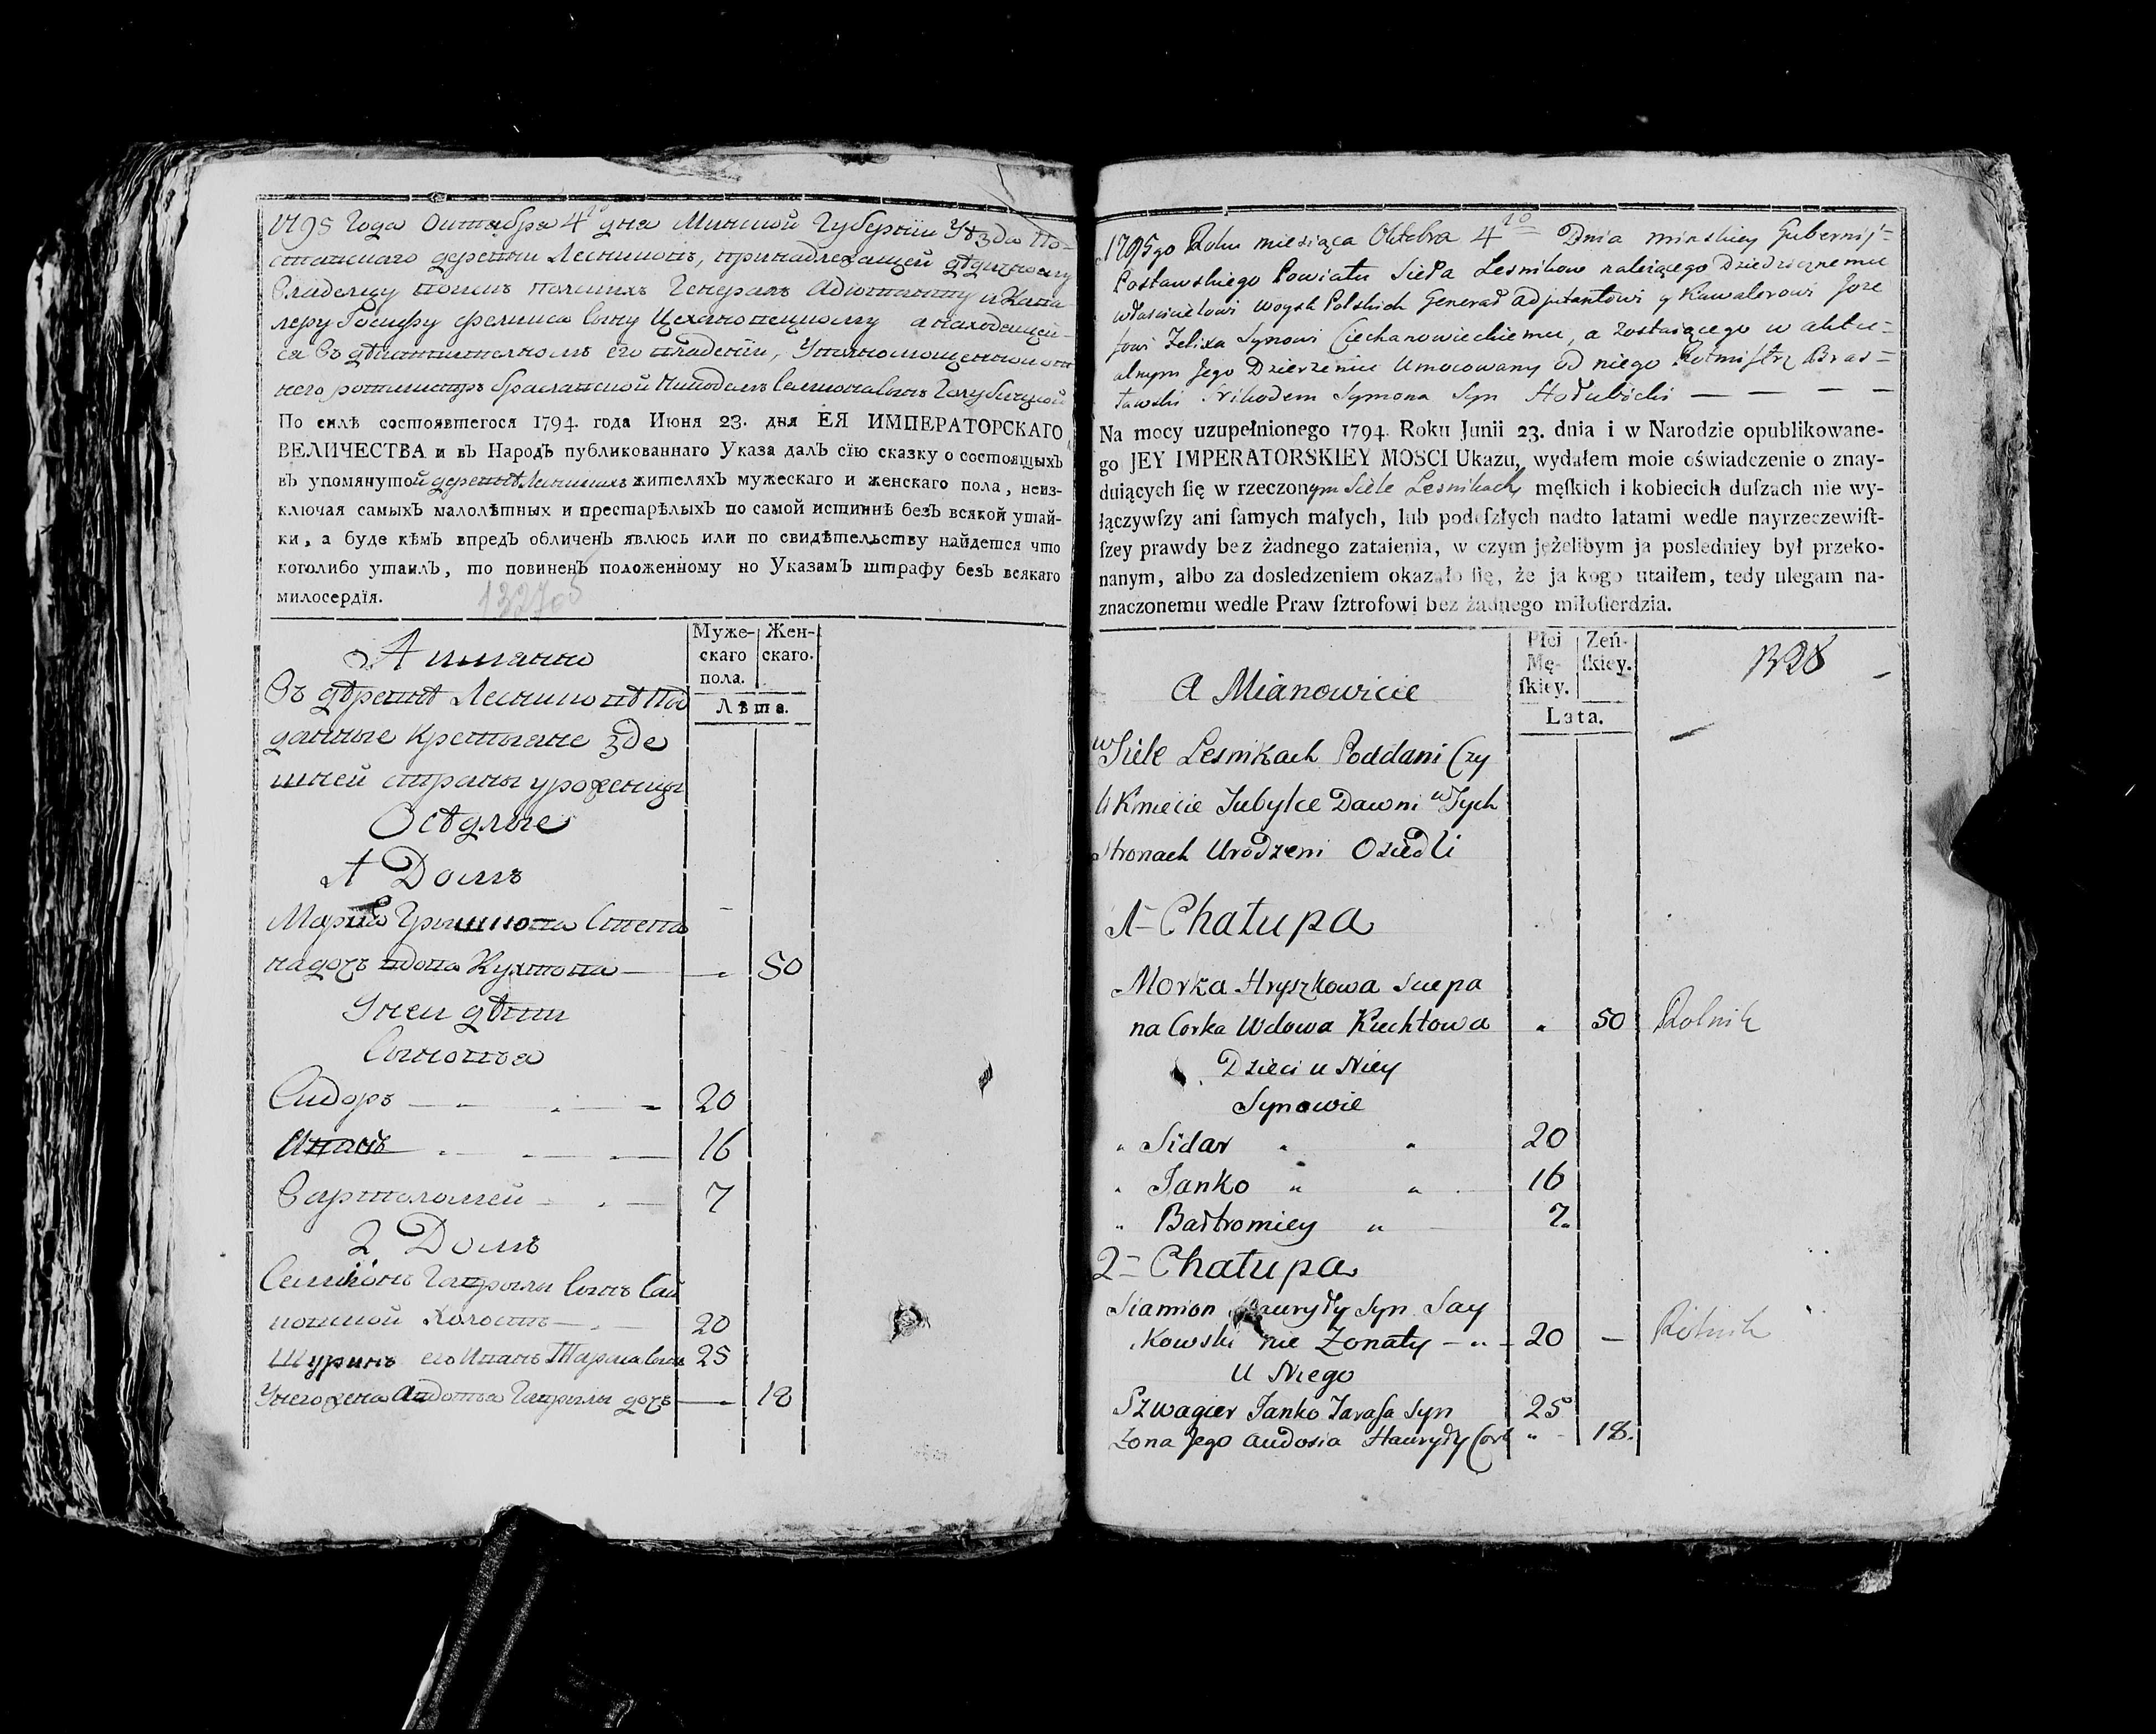 1795 года Октабра 4го дня Минской Губернии Уѣзда По-
ставскаго деревни Лесников, принадлежащей дѣдичному
владелцу войскъ полскихъ Генералъ Адютанту и Кава
леру Іосифу Феликса сыну Цехановецкому а находещей-
са въ дѣйствителномъ его владении, Уполномоценнои от
него ротмистръ браславской Никодемъ Семионавъ сынъ Голубицкой
По силѣ состоявшегося 1794. года Июня 23. дня ЕЯ ИМПЕРАТОРСКАГО
ВЕЛИЧЕСТВА и въ Народъ публикованнаго Указа далъ сїю сказку о состоящыхъ
въ упомянутой деревнѣ Лесникахъ жителяхъ мужескаго и женскаго пола, неиз-
ключая самыхъ малолѣтныхъ и престарѣлыхъ по самой истиннѣ безъ всякой утай-
ки, а буде кѣмъ впредъ обличенъ явлюсь или по свидѣтельству найдется что
коголибо утаилъ, то повиненъ положенному по Указамъ штрафу безъ всякаго
милосердїя.
А имянно
Муже-
скаго
пола.
Жен-
скаго.
Лѣта.
Въ дѣревнѣ Лесниковѣ Под
данные Крестьяне Зде
шней страны уроженцы
Осѣдлые
1 Домъ
Марья Гришкова Степа
на дочъ вдова Кухтова — 50
У неи дѣти
Сыновья
Сидоръ — 20
Иванъ — 16
Вартоломей — 7
2 Домъ
Семионъ Гаврылы сынъ Сай
ковской Холостъ — 20
Шуринъ его Иванъ Тараса сынъ 25
У него жена Авдотья Гаврылы дочъ — 18
1795go Roku miesiąca Oktobra 4to Dnia Minskiey Gubernij=
Postawskiego Powiatu Sieła Lesnikow należącego Dziedzicznemu
właścicielowi woysk Polskich Generał Adjutantowi y Kawalerowi Joze
fowi Felixa Synowi Ciechanowieckiemu, a zostaiącego w aktu=
alnym Jego Dzierżeniu Umocowany od niego Rotmistrz Bras=
ławski Nikodem Symona Syn Hołubicki — — —
Na mocy uzupełnionego 1794. Roku Junii 23. dnia i w Narodzie opublikowane-
go JEY IMPERATORSKIEY MOSCI Ukazu, wydałem moie oświadczenie o znay-
duiących ſię w rzeczonym Siele Lesnikach męſkich i kobiecich duſzach nie wy-
łączywſzy ani ſamych małych, lub podeſzłych nadto latami wedle nayrzeczewiſt-
ſzey prawdy bez żadnego zataienia, w czym jężelibym ja posledniey był przeko-
nanym, albo za dosledzeniem okazało ſię, że ja kogo utaiłem, tedy ulegam na-
znaczonemu wedle Praw ſztrofowi bez żadnego miłoſierdzia.
A Mianowicie
Płci
Mę-
ſkiey.
Żeń-
ſkiey.
Lata.
1328
w Siele Lesnikach Poddani Czy
li Kmiecie Tubylce Dawni w Tych
Stronach Urodzeni Osiedli
1 - Chałupa
Morza Hryszkowa Scepa
na Corka Wdowa Kuchtowa 50 Rolnik
Dzieci u Niey
Synowie
Sidar 20
Janko 16
Bałtromiey 7
2 = Chałupa
Siamion Hauryły Syn Say
kowski nie Żonaty 20 — Rolnik
U Niego
Szwagier Janko Tarasa Syn 25
Żona Jego Audosia Hauryły Cork 18.